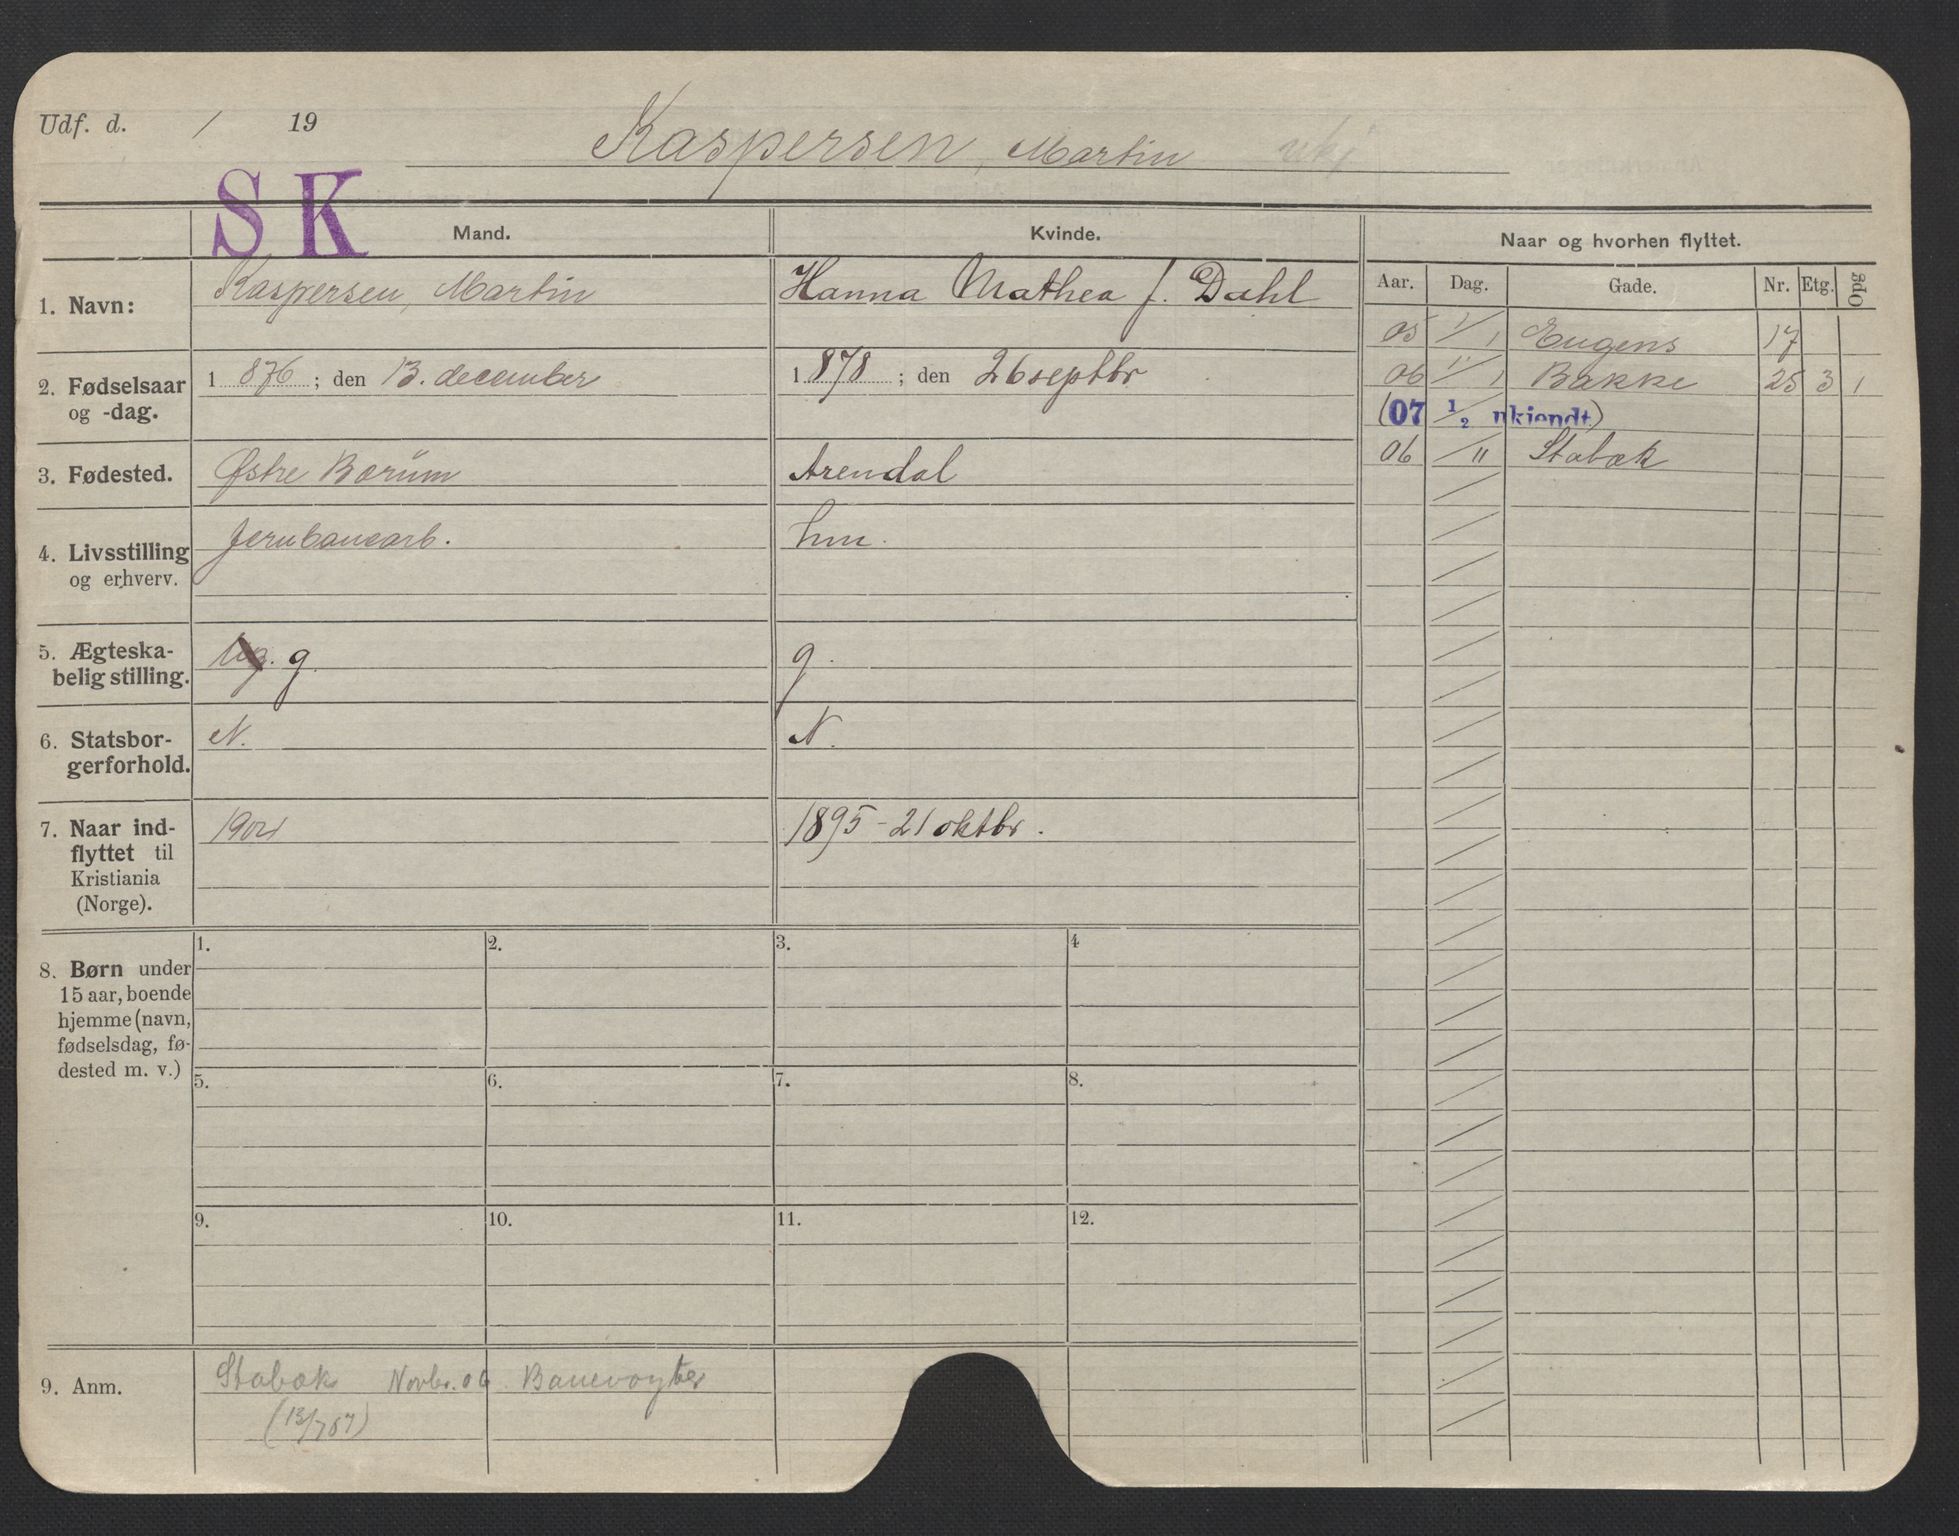 Udf. d. / 19
Kaspersen, Martin ukj
S K
Mand. Kvinde. Naar og hvorhen flyttet.
Aar. Dag. Gade. Nr. Etg. Opg
1. Navn: Kaspersen, Martin Hanna Mathea f. Dahl
05 1/1 Eugens 17
2. Fødselsaar og -dag. 1 876 ; den 13. december 1 878 ; den 26 septbr
06 1/1 Bakke 25 3 1
(07 1/2 ukjendt)
3. Fødested. Østre Bærum Arendal
06 / 11 Stabæk
4. Livsstilling og erhverv. Jernbanearb. hm.
5. Ægteska-
belig stilling. Ug. g. g.
6. Statsbor-
gerforhold. N. N.
7. Naar ind-
flyttet til
Kristiania
(Norge). 1904 1895 - 21 oktbr.
8. Børn under
15 aar, boende
hjemme (navn,
fødselsdag, fø-
dested m. v.)
1. 2. 3. 4
5. 6. 7. 8.
9. 10. 11. 12.
9. Anm. Stabæk Novbr. 06 Banevogter
(13/7 07)